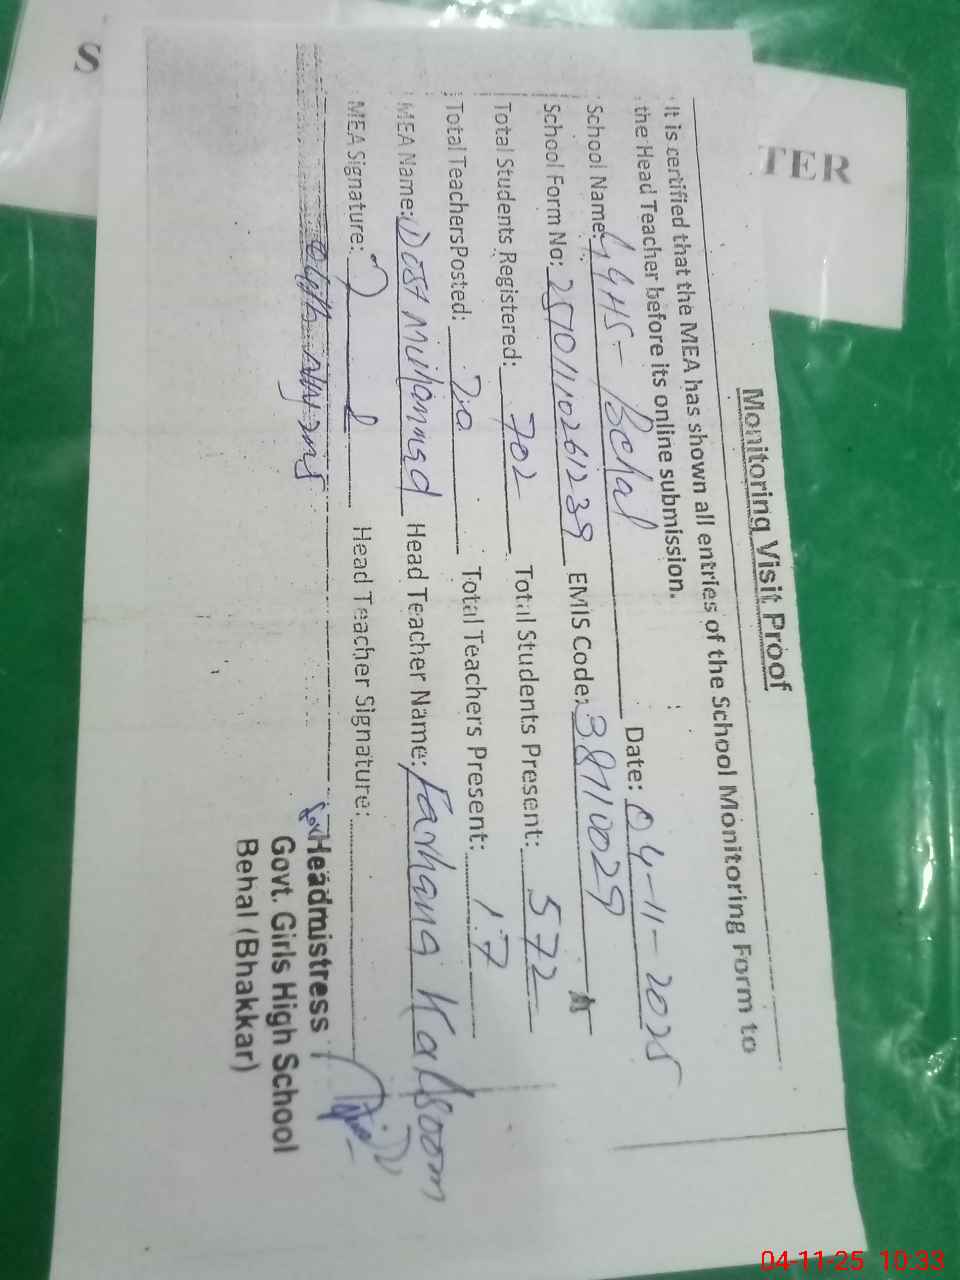 Monitoring Visit Proof
It is certified that the MEA has shown all entries of the School Monitoring Form to
the Head Teacher before its online submission.
School Name: GGHS- Behal Date: 04-11-2025
School Form No: 25101110261239 EMIS Code: 38110029
Total Students Registered: 702 Total Students Present: 572
Total Teachers Posted: 20 Total Teachers Present: 17
MEA Name: Dost Muhammad Head Teacher Name: Farhana Kalsoom
MEA Signature: Head Teacher Signature:
for Headmistress
Govt. Girls High School
Behal (Bhakkar)
S
TER
04-11-25 10:33